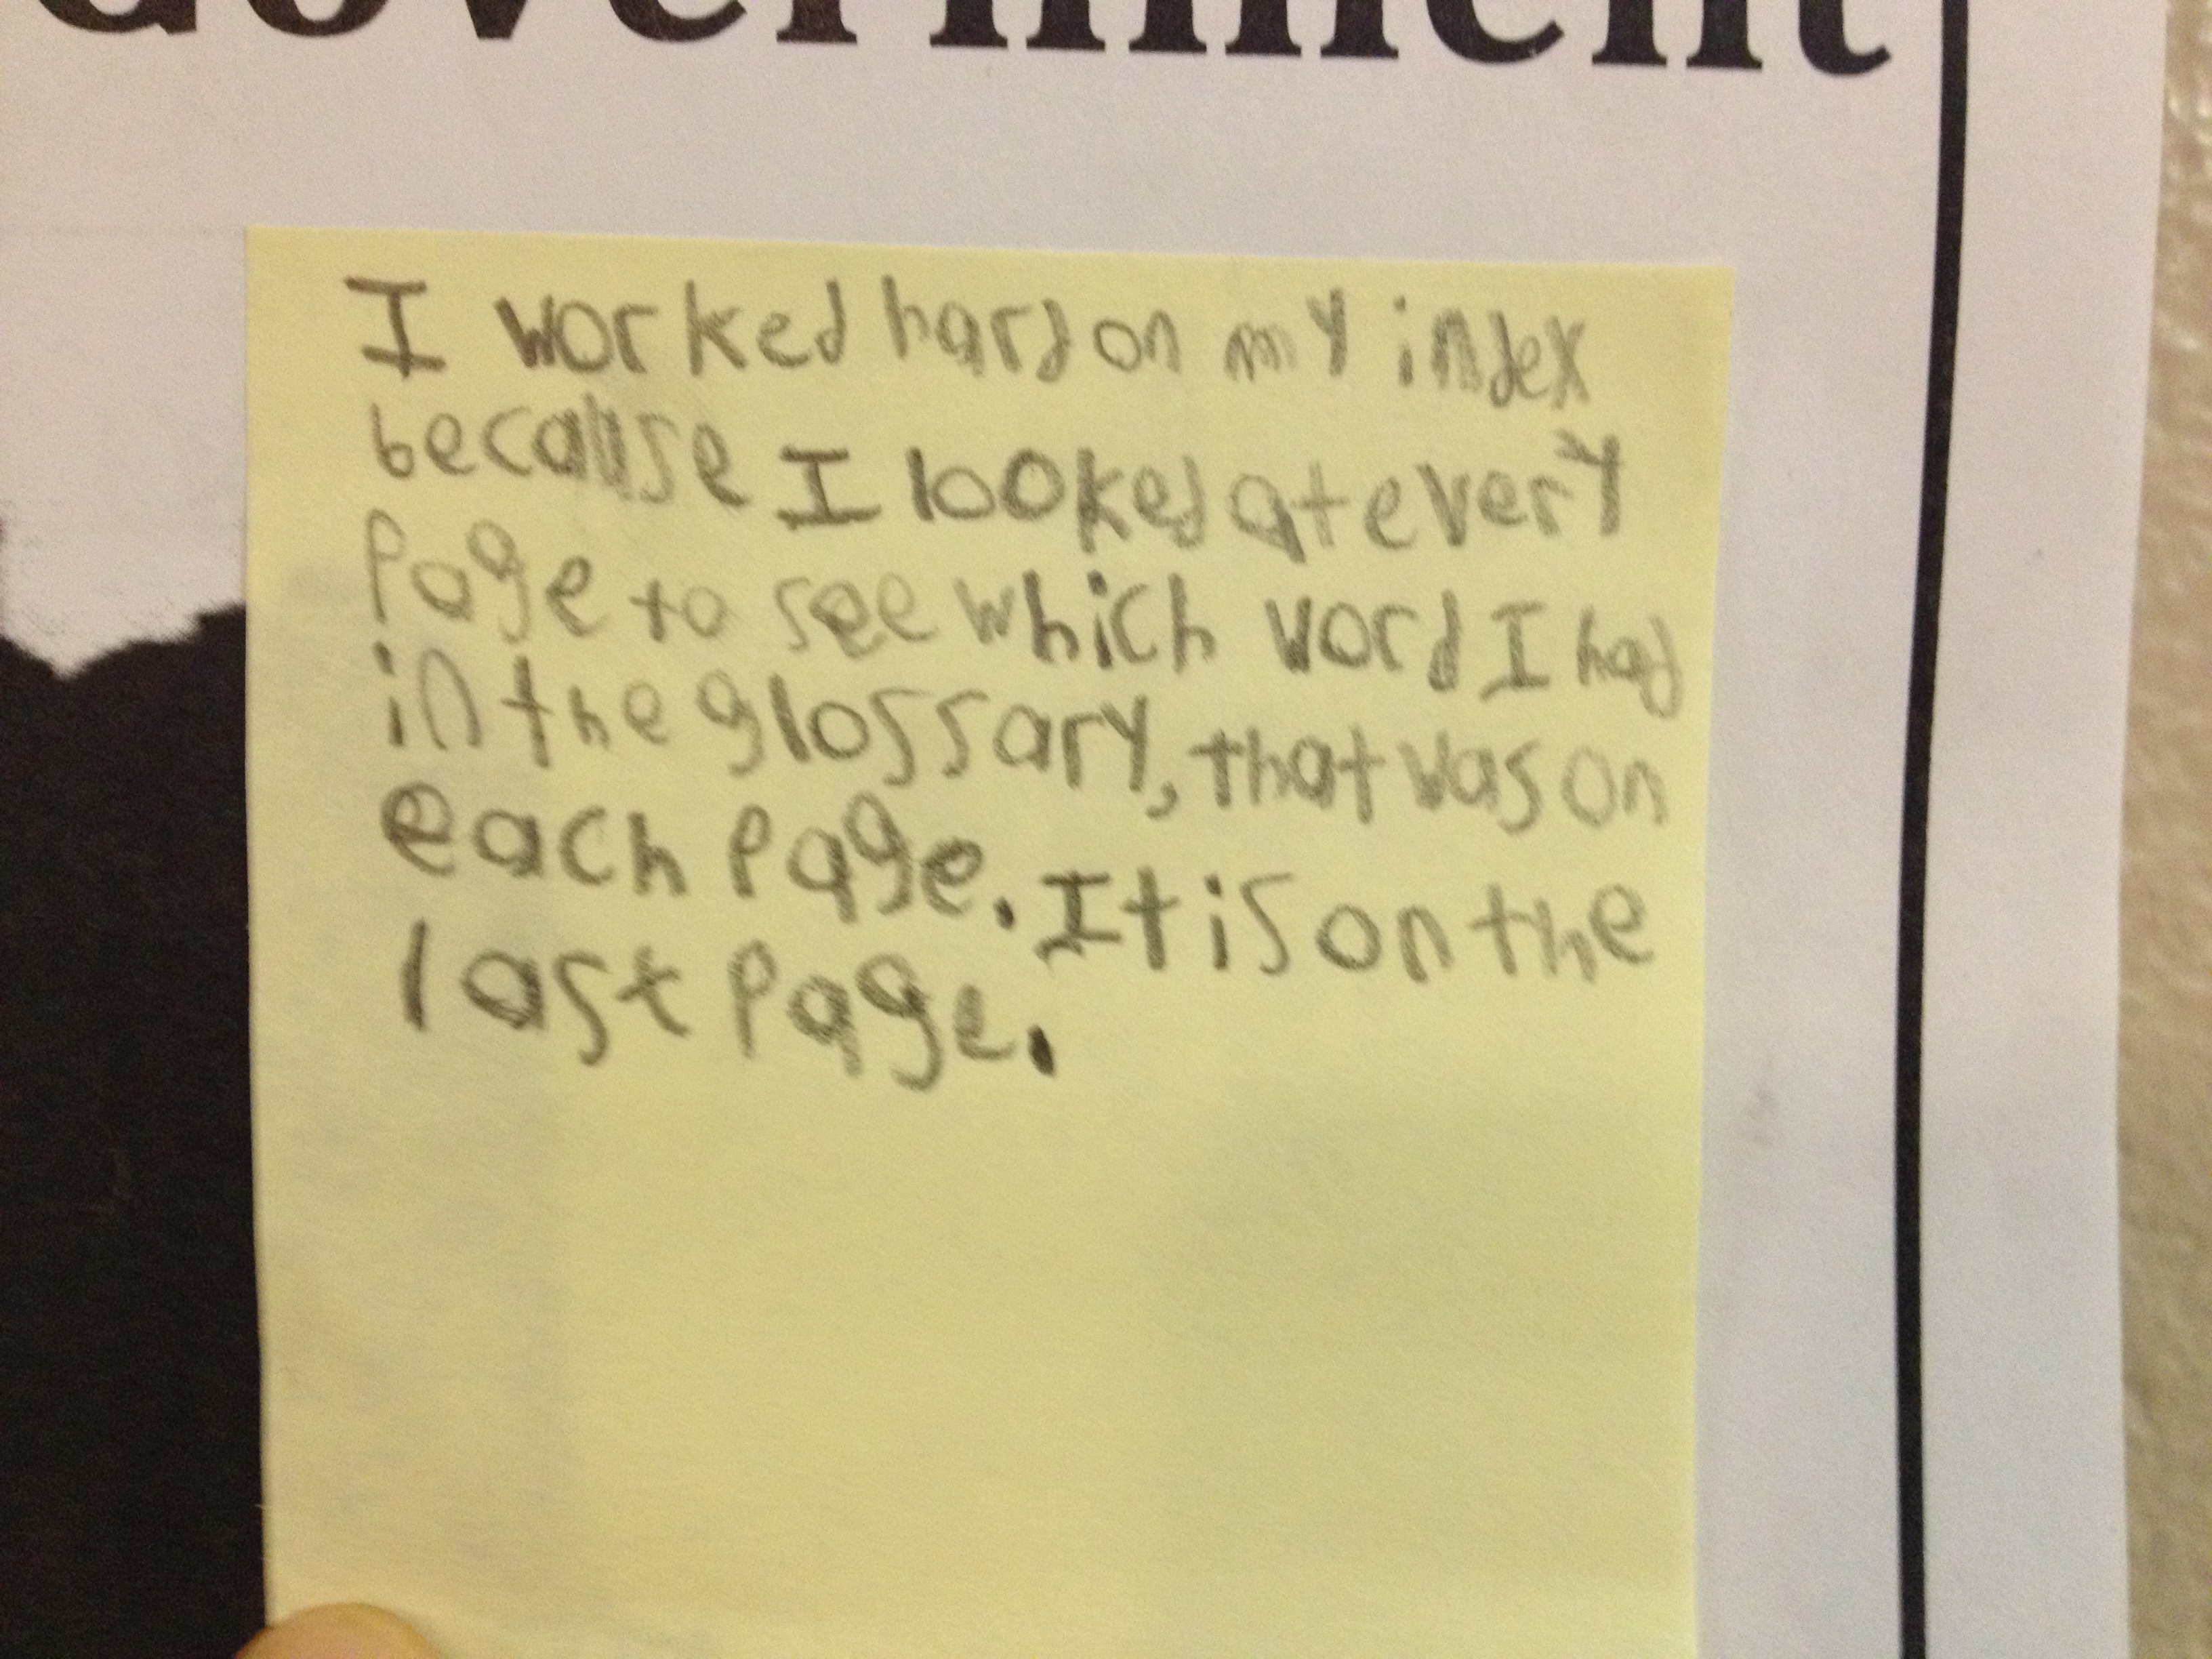 Government
I worked hard on my index
because I looked at every
page to see which word I had
in the glossary, that was on
each page. It is on the
last page.